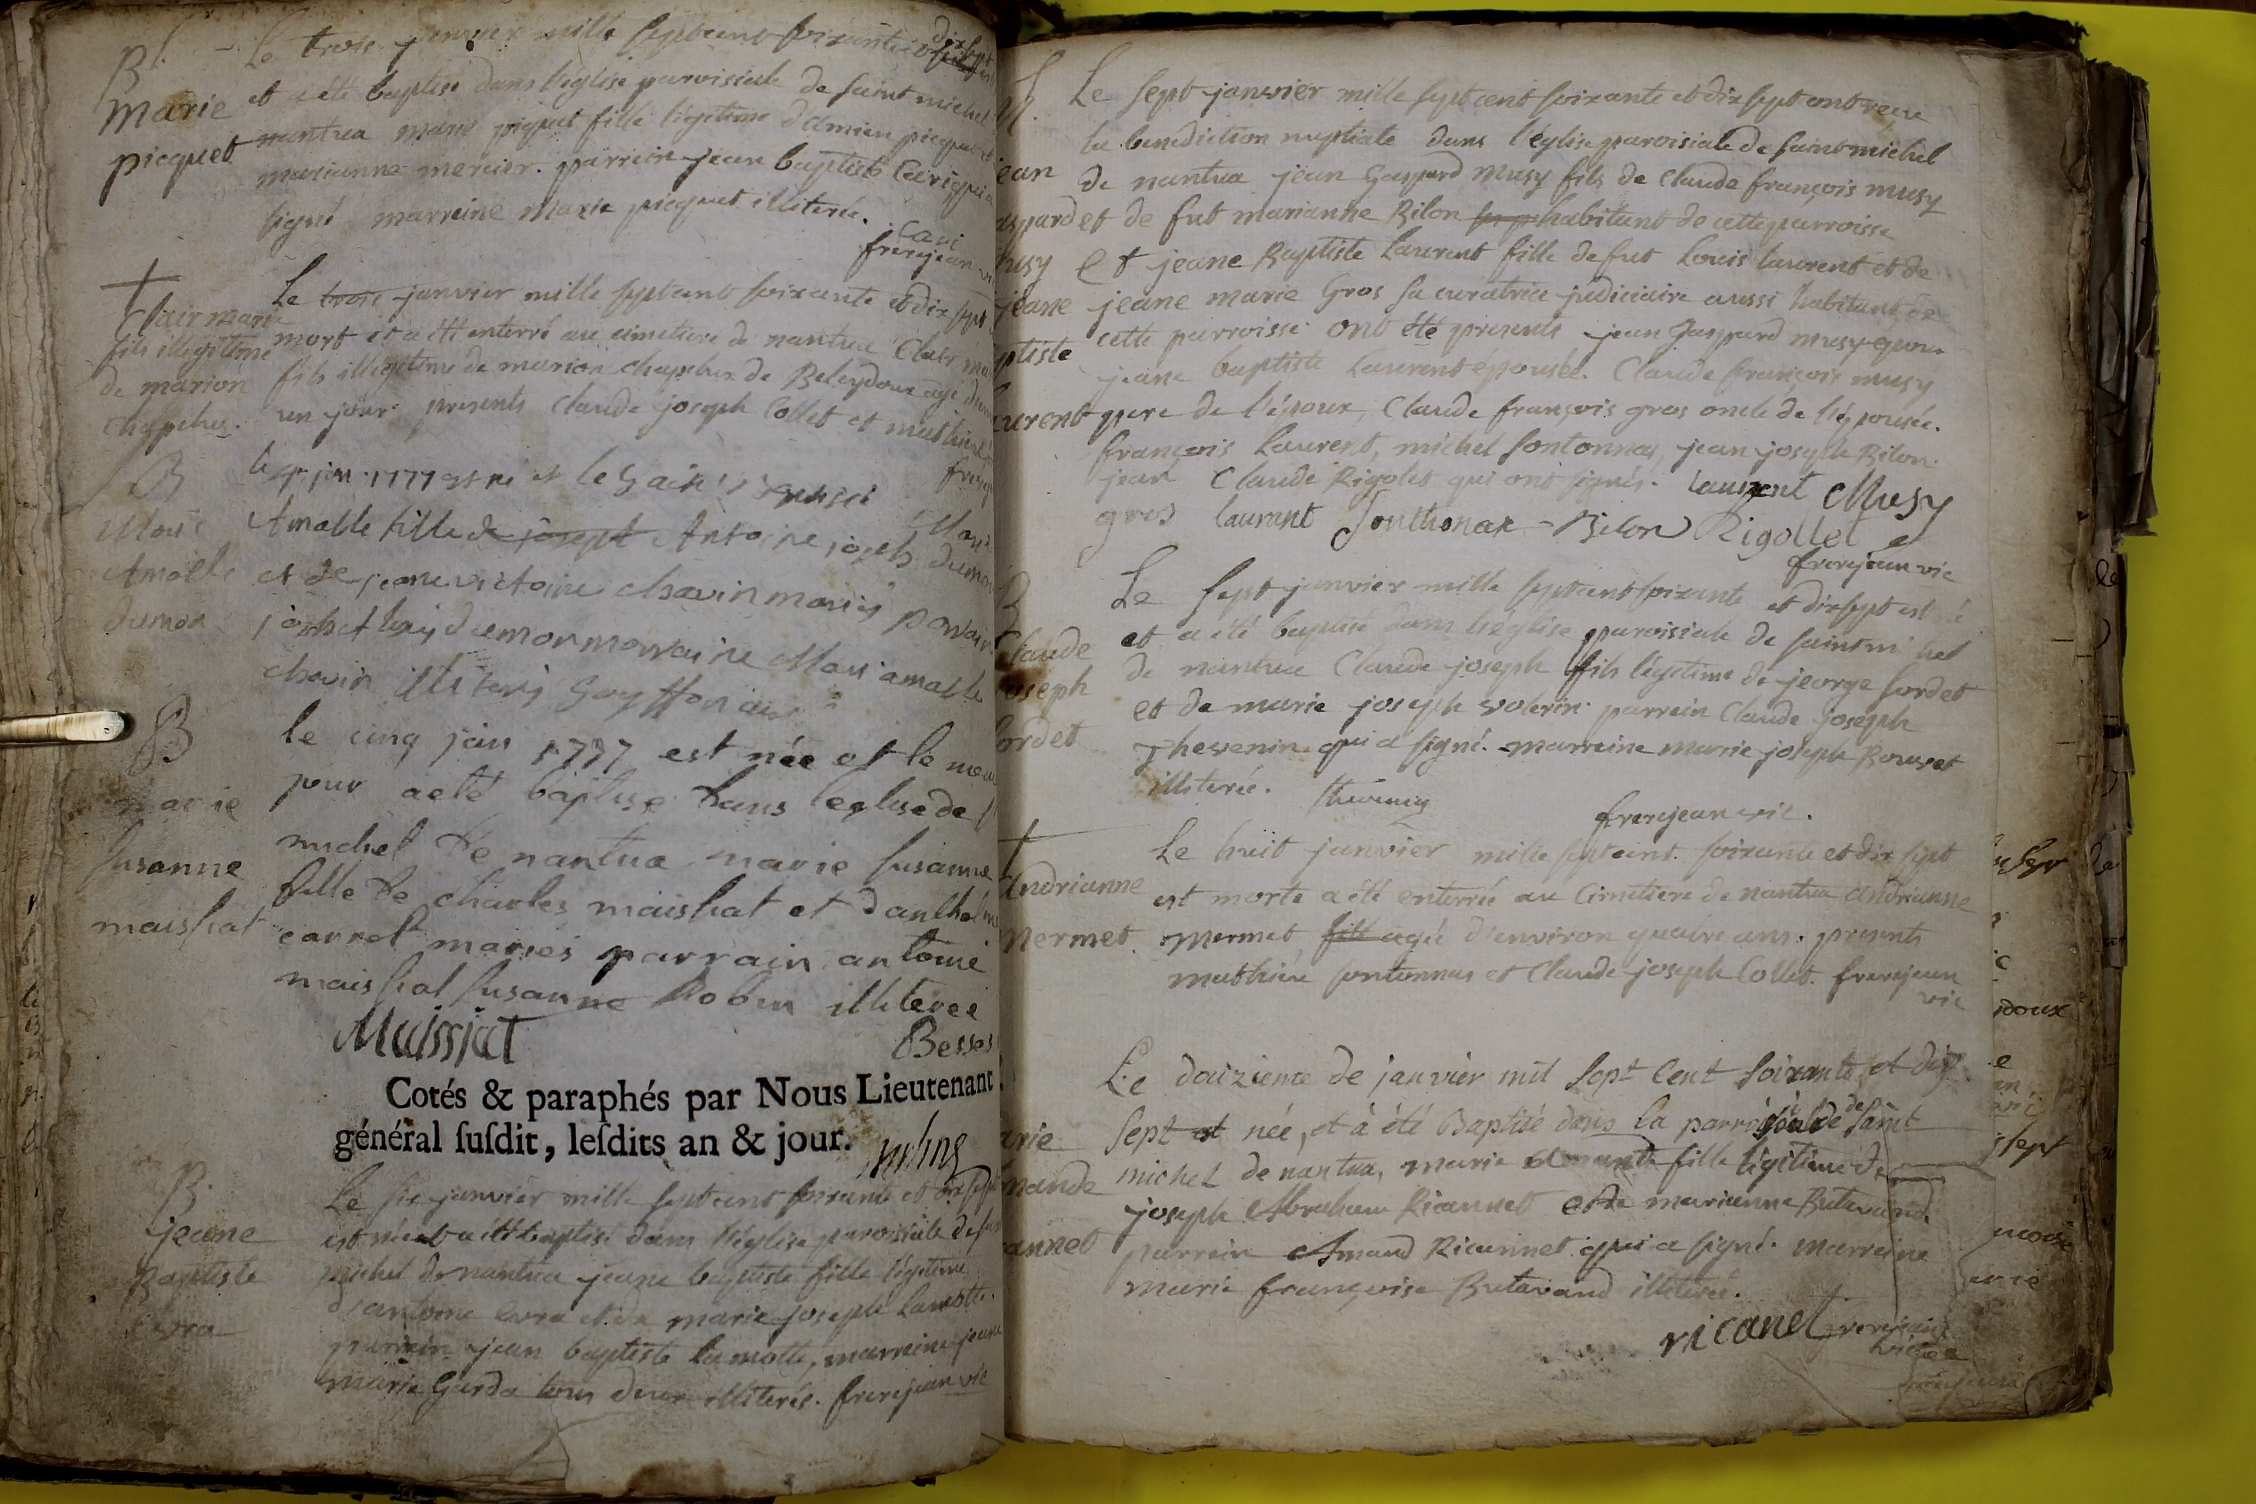 B.
Marie
picquet
Le trois janvier mille septcent soixante dix sept
et a été baptisé dans l'église parroisiale de saint michel
nantua marie piquet fille légitime damien picquet et
marianne mercier. parrein jean baptiste Cari qui a
signé marreine marie picquet illiterée.
Cari
frerejean
Clair marie
fils illégitime
de marion
Chapelus.
Le trois janvier mille septcent soixante et dix sept
mort et a été enterré au cimetiere de nantua Clair
fils illegitime de marion chapelus de Beleydoux agé d'un
un jour. presents Claude joseph Collet et
B
Marie
Amable
dumon
le 4 jan. 1777 est né et le
Amable fille de joseph Antoine joseph dumon
et de jeane victoire chavin mariés parrain
dumon marraine Marie amable
chavin illiterés Guyffon
B
marie
susanne
maissiat
le cinq jan 1777 est née et le meme
jour a eté baptisé dans l'eglise de
michel de nantua marie susanne
fille de charles maissiat et d'anthel
carret mariés parrain antoine
maissiat susanne Robin illiterée
Maissiat
Besses
Cotés & paraphés par Nous Lieutenant
général susdit, lesdits an & jour.
B.
jeane
Baptiste
Le six janvier mille septcent soixante et dix sept
est née et a été baptisé dans l'église parroisiale de
michel de nantua jeane baptiste fille légitime
d'antoine et de marie joseph Lamotte.
parrein jean baptiste lamotte, marreine jeane
marie Garda tous deux illiterés. frerejean vic
M.
jean
Musy
jeane
Le sept janvier mille sept cent soixante et dix sept ont reçu
la benediction nuptiale dans l'église parroisiale de saint michel
de nantua jean Gaspard Musy fils de Claude françois musy
et de fut marianne Bilon habitant de cette parroisse
Et jeane Baptiste Laurent fille de fut Louis laurent et de
jeane marie Gros sa curatrice judiciaire aussi habitant de
cette parroisse ont été presents jean Gaspard musy epoux
jeane baptiste Laurent épousée. Claude françois musy
pere de l'époux, Claude françois gros oncle de l'épousée.
françois Laurent, michel sontonnax, jean joseph Bilon.
jean Claude Rigolet qui ont signés. laurent Musy
gros laurant Sonthonax Bilon Rigollet
frerejean vic
B
Claude
joseph
sordet
Le sept janvier mille septcent soixante et dix sept est né
et a été baptisé dans l'église parroisiale de saint michel
de nantua Claude joseph fils légitime de jeorge sordet
et de marie joseph volerin. parrein Claude joseph
Thevenin qui a signé. marreine marie joseph Bouvet
illiterée. thevenin
frerejean vic.
Andrianne
Mermet
Le huit janvier mille septcent soixante et dix sept
est morte a été enterrée au Cimetiere de nantua andrianne
Mermet fille agée d'environ quatre ans. presents
mathieu sontonnax et Claude joseph Collet. frerejean
vic
Le douzieme de janvier mil sept cent soixante et dix
sept est née, et à été Baptisé dans la parroisse de saint
michel de nantua, marie fille légitime de
joseph Abraham Ricannet et de marianne Butavand.
parrein Amand Ricannet qui a signé. marreine
marie françoise Butavand illiterée.
ricanet frerejean
vicaire